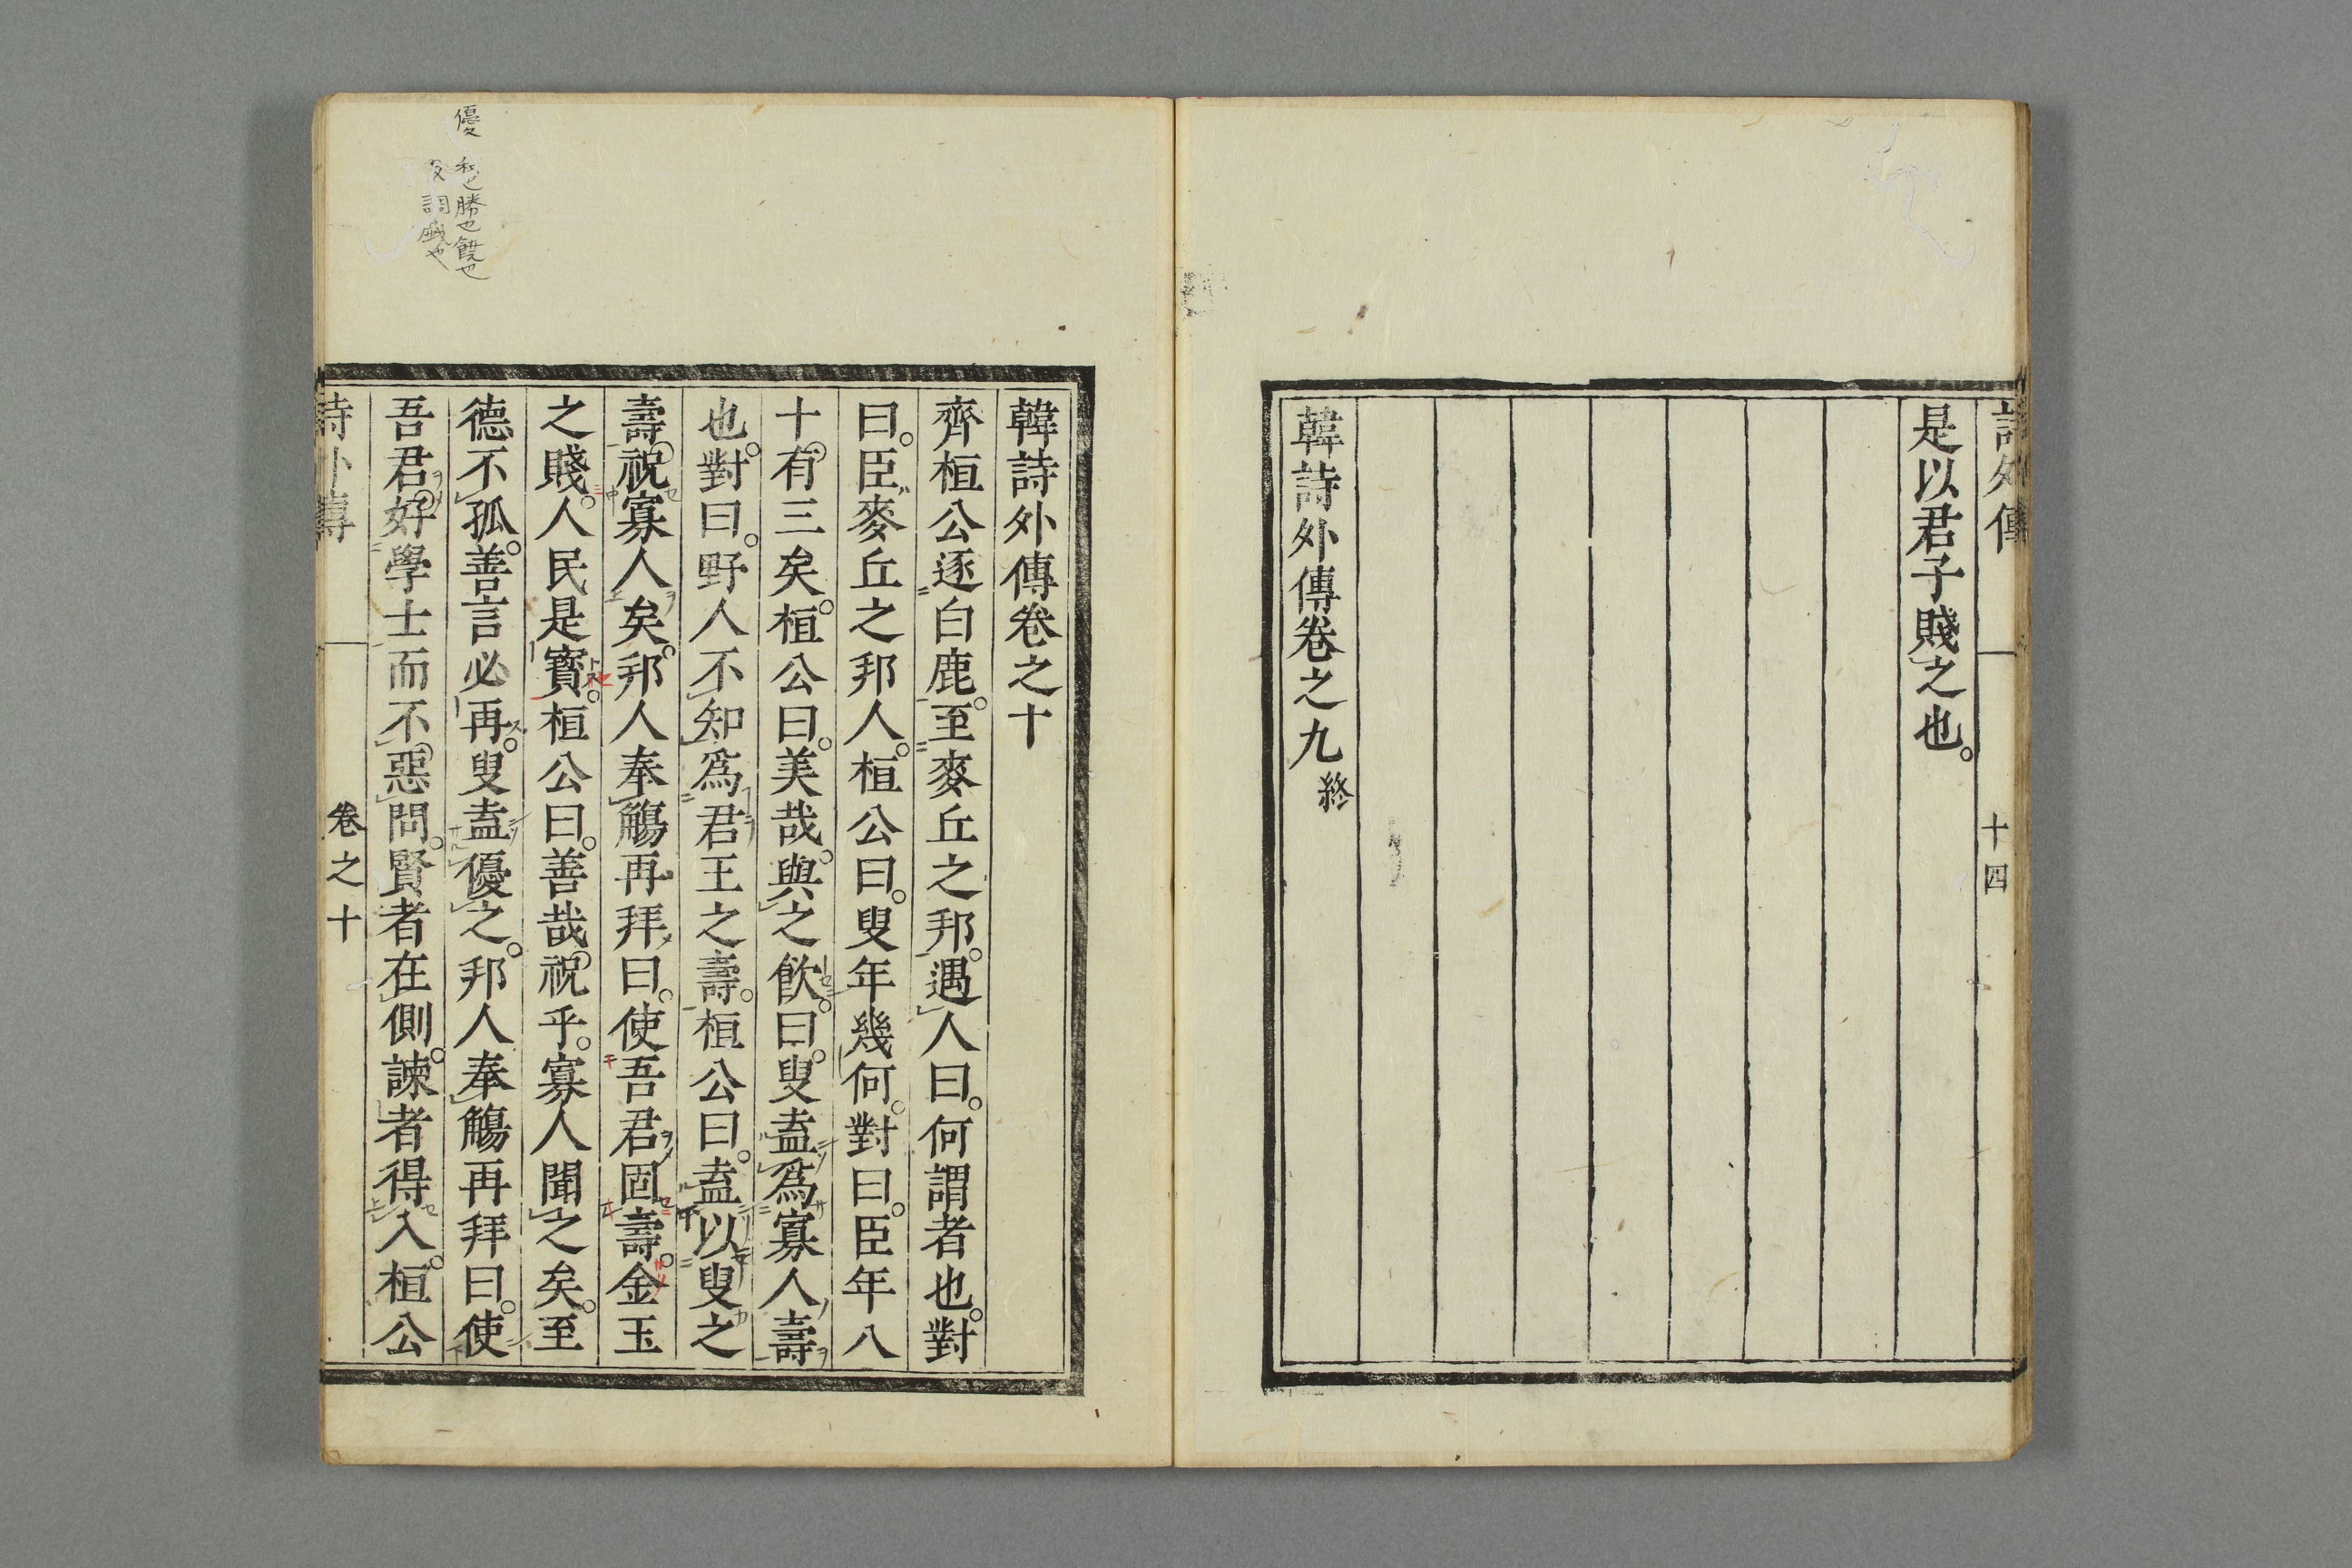 詩外傳 十四
是以君子賤之也。
韓詩外傳卷之九終
韓詩外傳卷之十
齊桓公逐白鹿。至麥丘之邦。遇人曰。何謂者也。對
曰。臣麥丘之邦人。桓公曰。叟年幾何。對曰。臣年八
十有三矣。桓公曰。美哉。與之飮。曰。叟盍爲寡人壽
也。對曰。野人不知爲君王之壽。桓公曰。盍以叟之
壽。祝寡人矣。邦人奉觴再拜曰。使吾君固壽。金玉
之賤。人民是寳。桓公曰。善哉。祝乎。寡人聞之矣。至
德不孤。善言必再。叟盍優之。邦人奉觴再拜曰。使
吾君。好學士而不惡問。賢者在側。諫者得入。桓公
詩外傳 卷之十
優 和也勝也饒也
調戲也